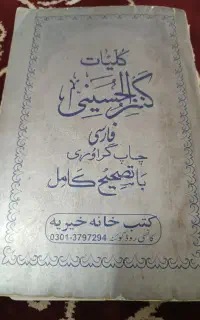 کلیات
کنز الحسینی
فارسی
چاپ گراوری
با تصحیح کامل
کتب خانه خیریه
0301-3797294